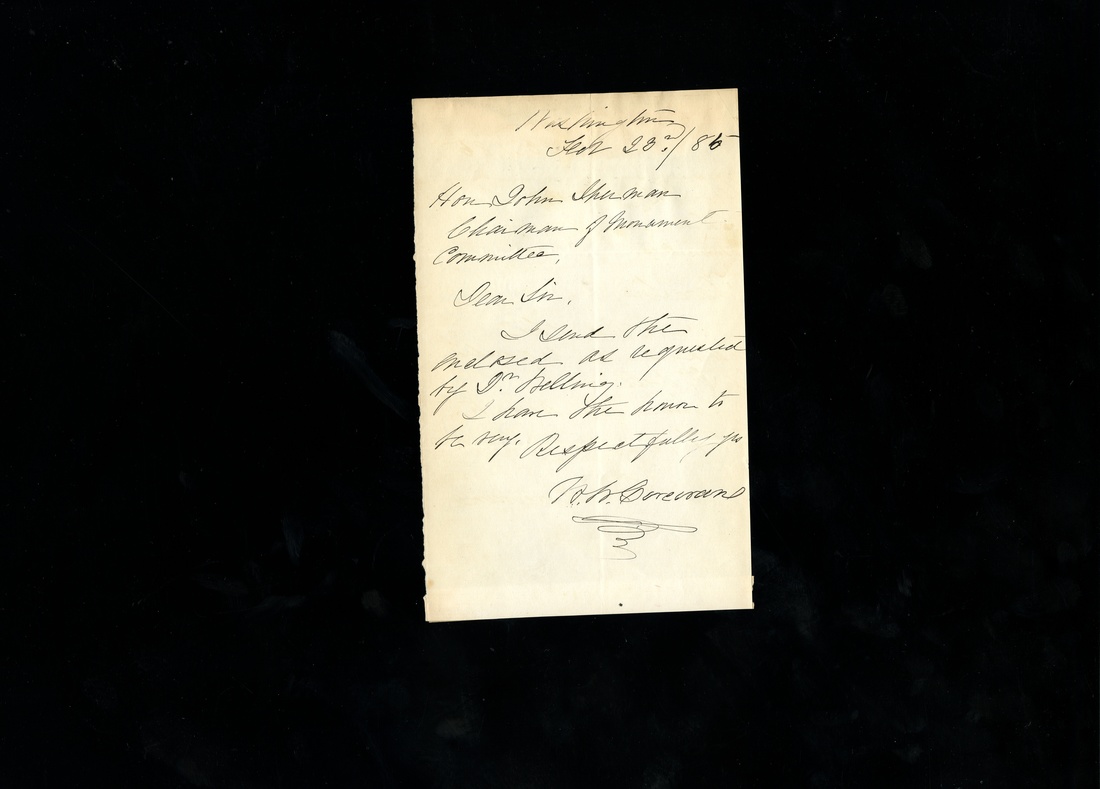 Washington
Feb 23d/85
Hon. John Sherman
Chairman of Monument
Committee,
Dear Sir,
I send the
enclosed as requested
by Dr.
I have the honor to
be very, Respectfully yrs
W. W. Corcoran